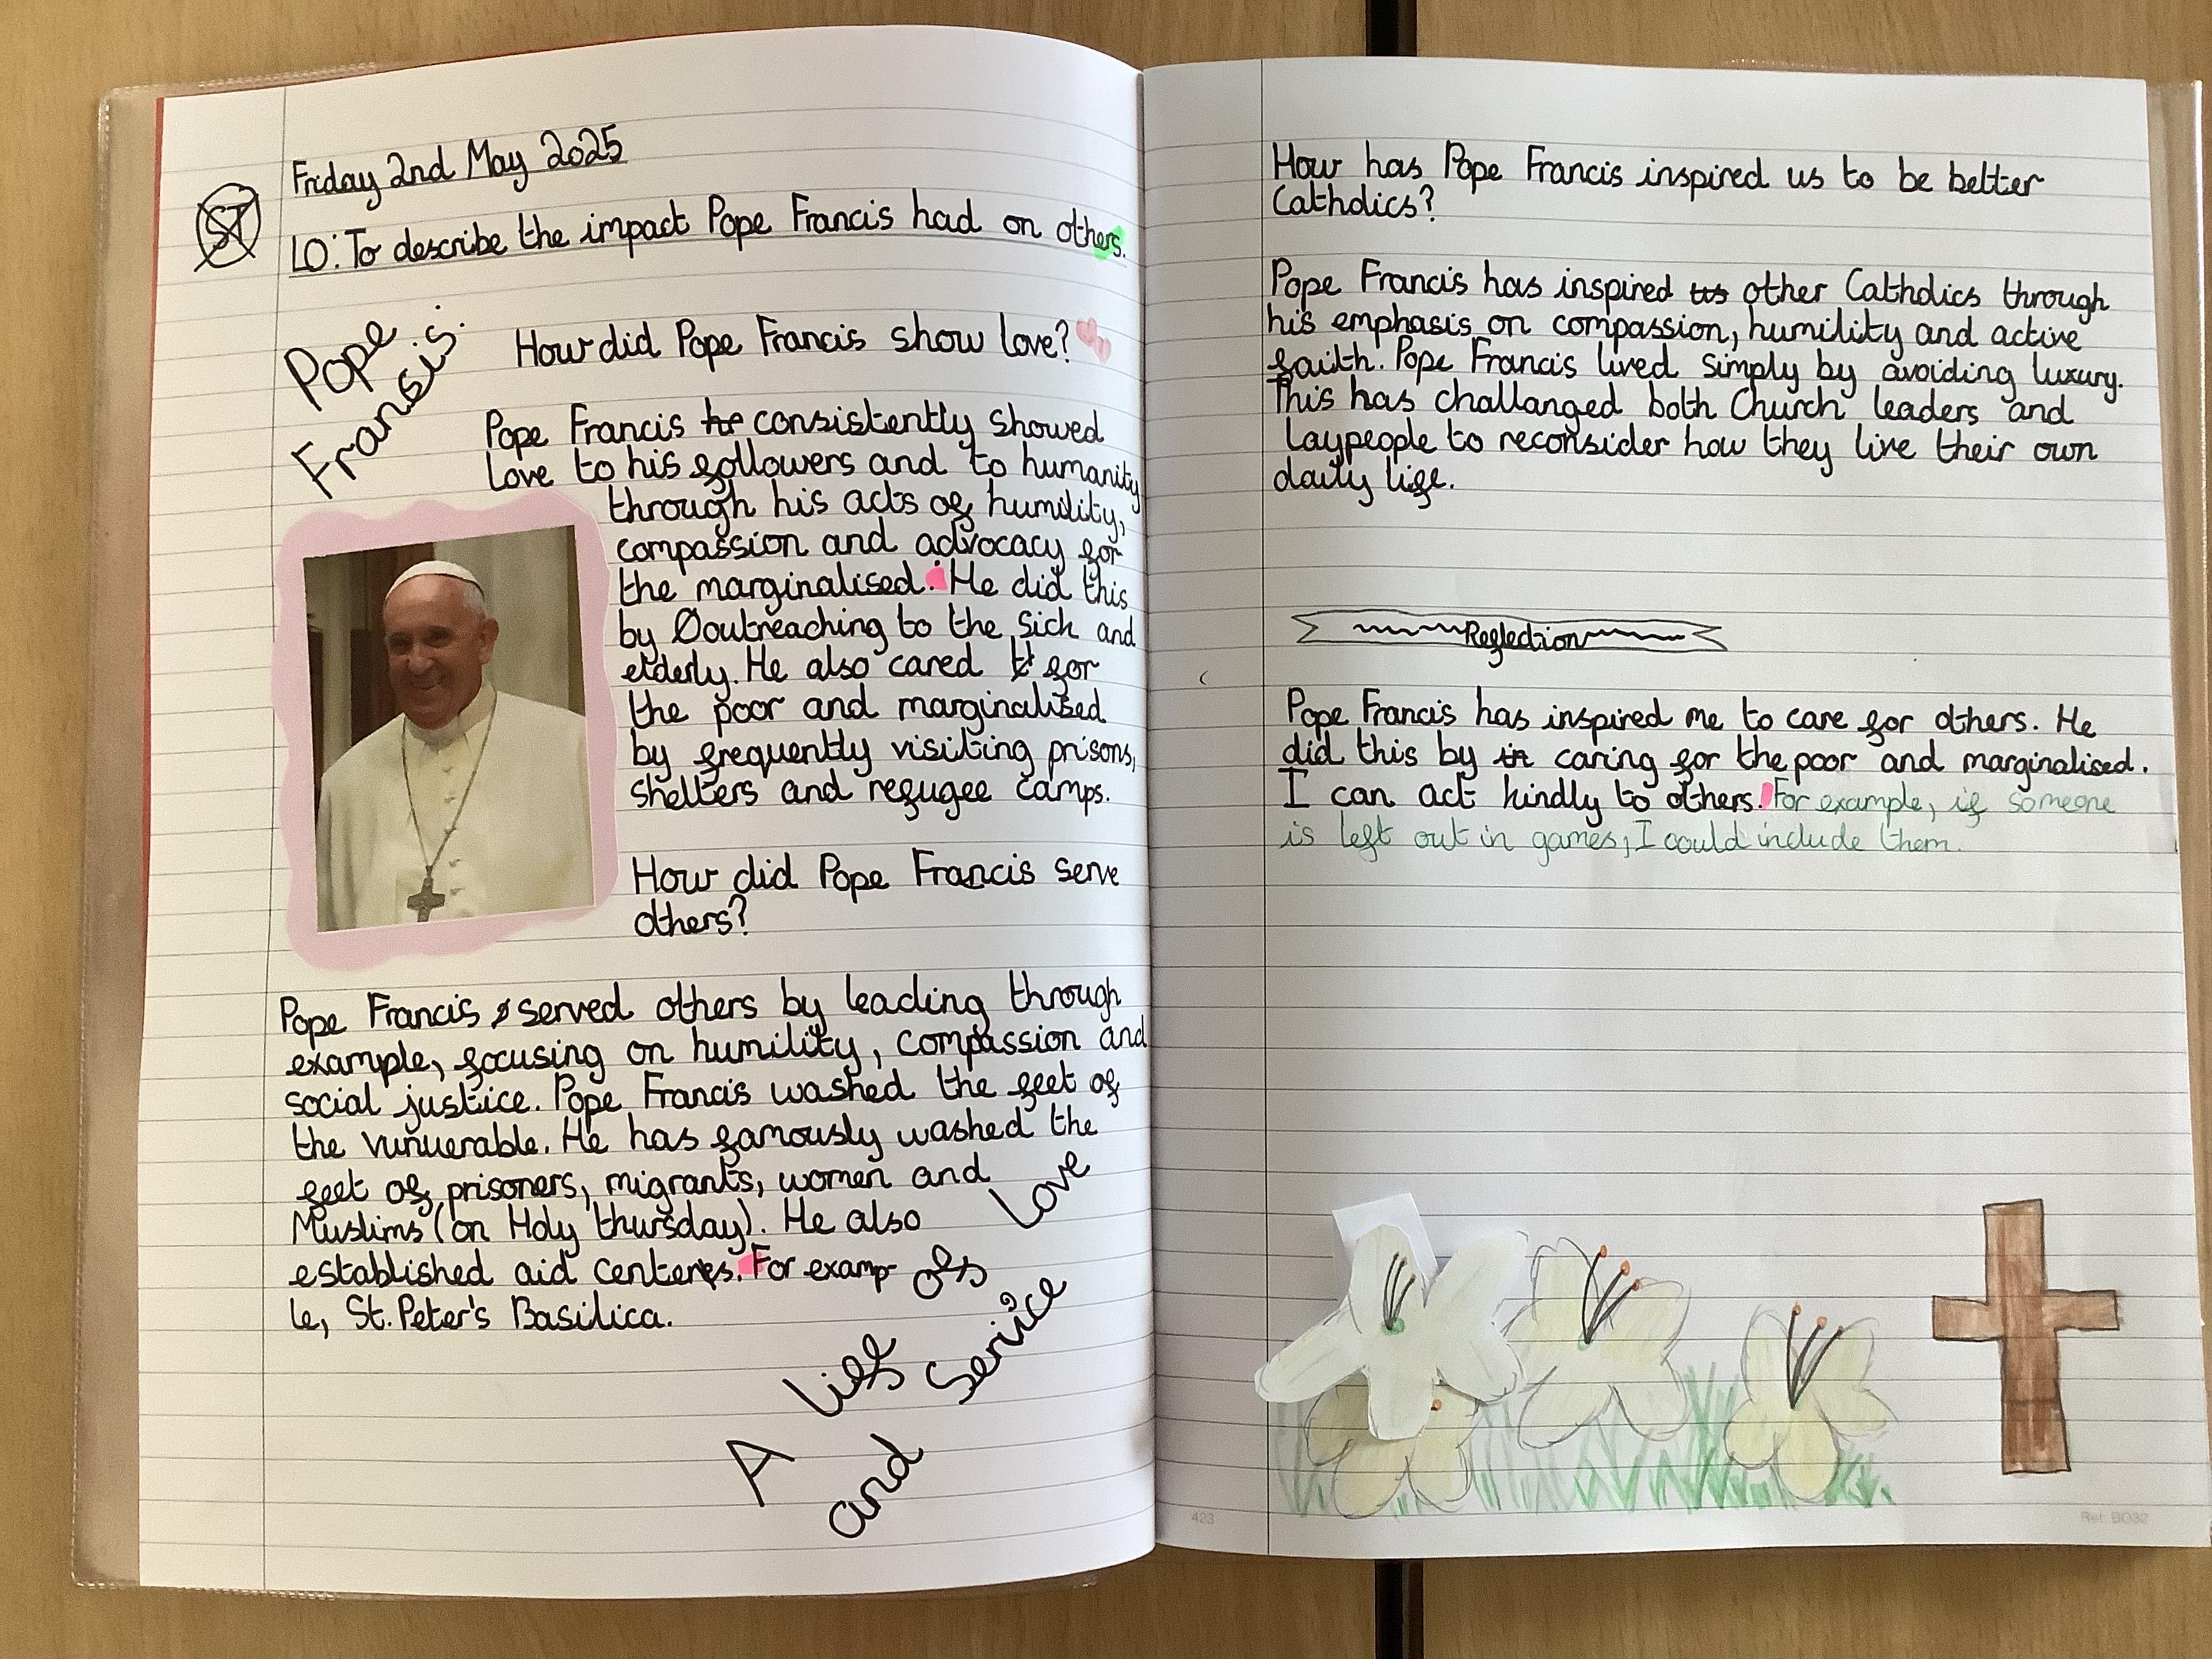 Friday 2nd May 2025
ST
LO: To describe the impact Pope Francis had on others.
Pope
Francis:
How did Pope Francis show love?
Pope Francis he consistently showed
love to his followers and to humanity
through his acts of humility,
compassion and advocacy for
the marginalised. He did this
by Ooutreaching to the sick and
elderly. He also cared for
the poor and marginalised
by frequently visiting prisons,
shelters and refugee camps.
How did Pope Francis serve
others?
Pope Francis served others by leading through
example, focusing on humility, compassion and
social justice. Pope Francis washed the feet of
the vunuerable. He has famously washed the
feet of prisoners, migrants, women and
Muslims (on Holy thursday). He also
established aid centeres. For examp-
le, St. Peter's Basilica.
A life of Love
and Service
How has Pope Francis inspired us to be better
Catholics?
Pope Francis has inspired us other Catholics through
his emphasis on compassion, humility and active
faith. Pope Francis lived simply by avoiding luxury.
This has challanged both Church leaders and
Laypeople to reconsider how they live their own
daily life.
Reflection
Pope Francis has inspired me to care for others. He
did this by in caring for the poor and marginalised.
I can act kindly to others. For example, if someone
is left out in games, I could include them.
423
Ref: BO32